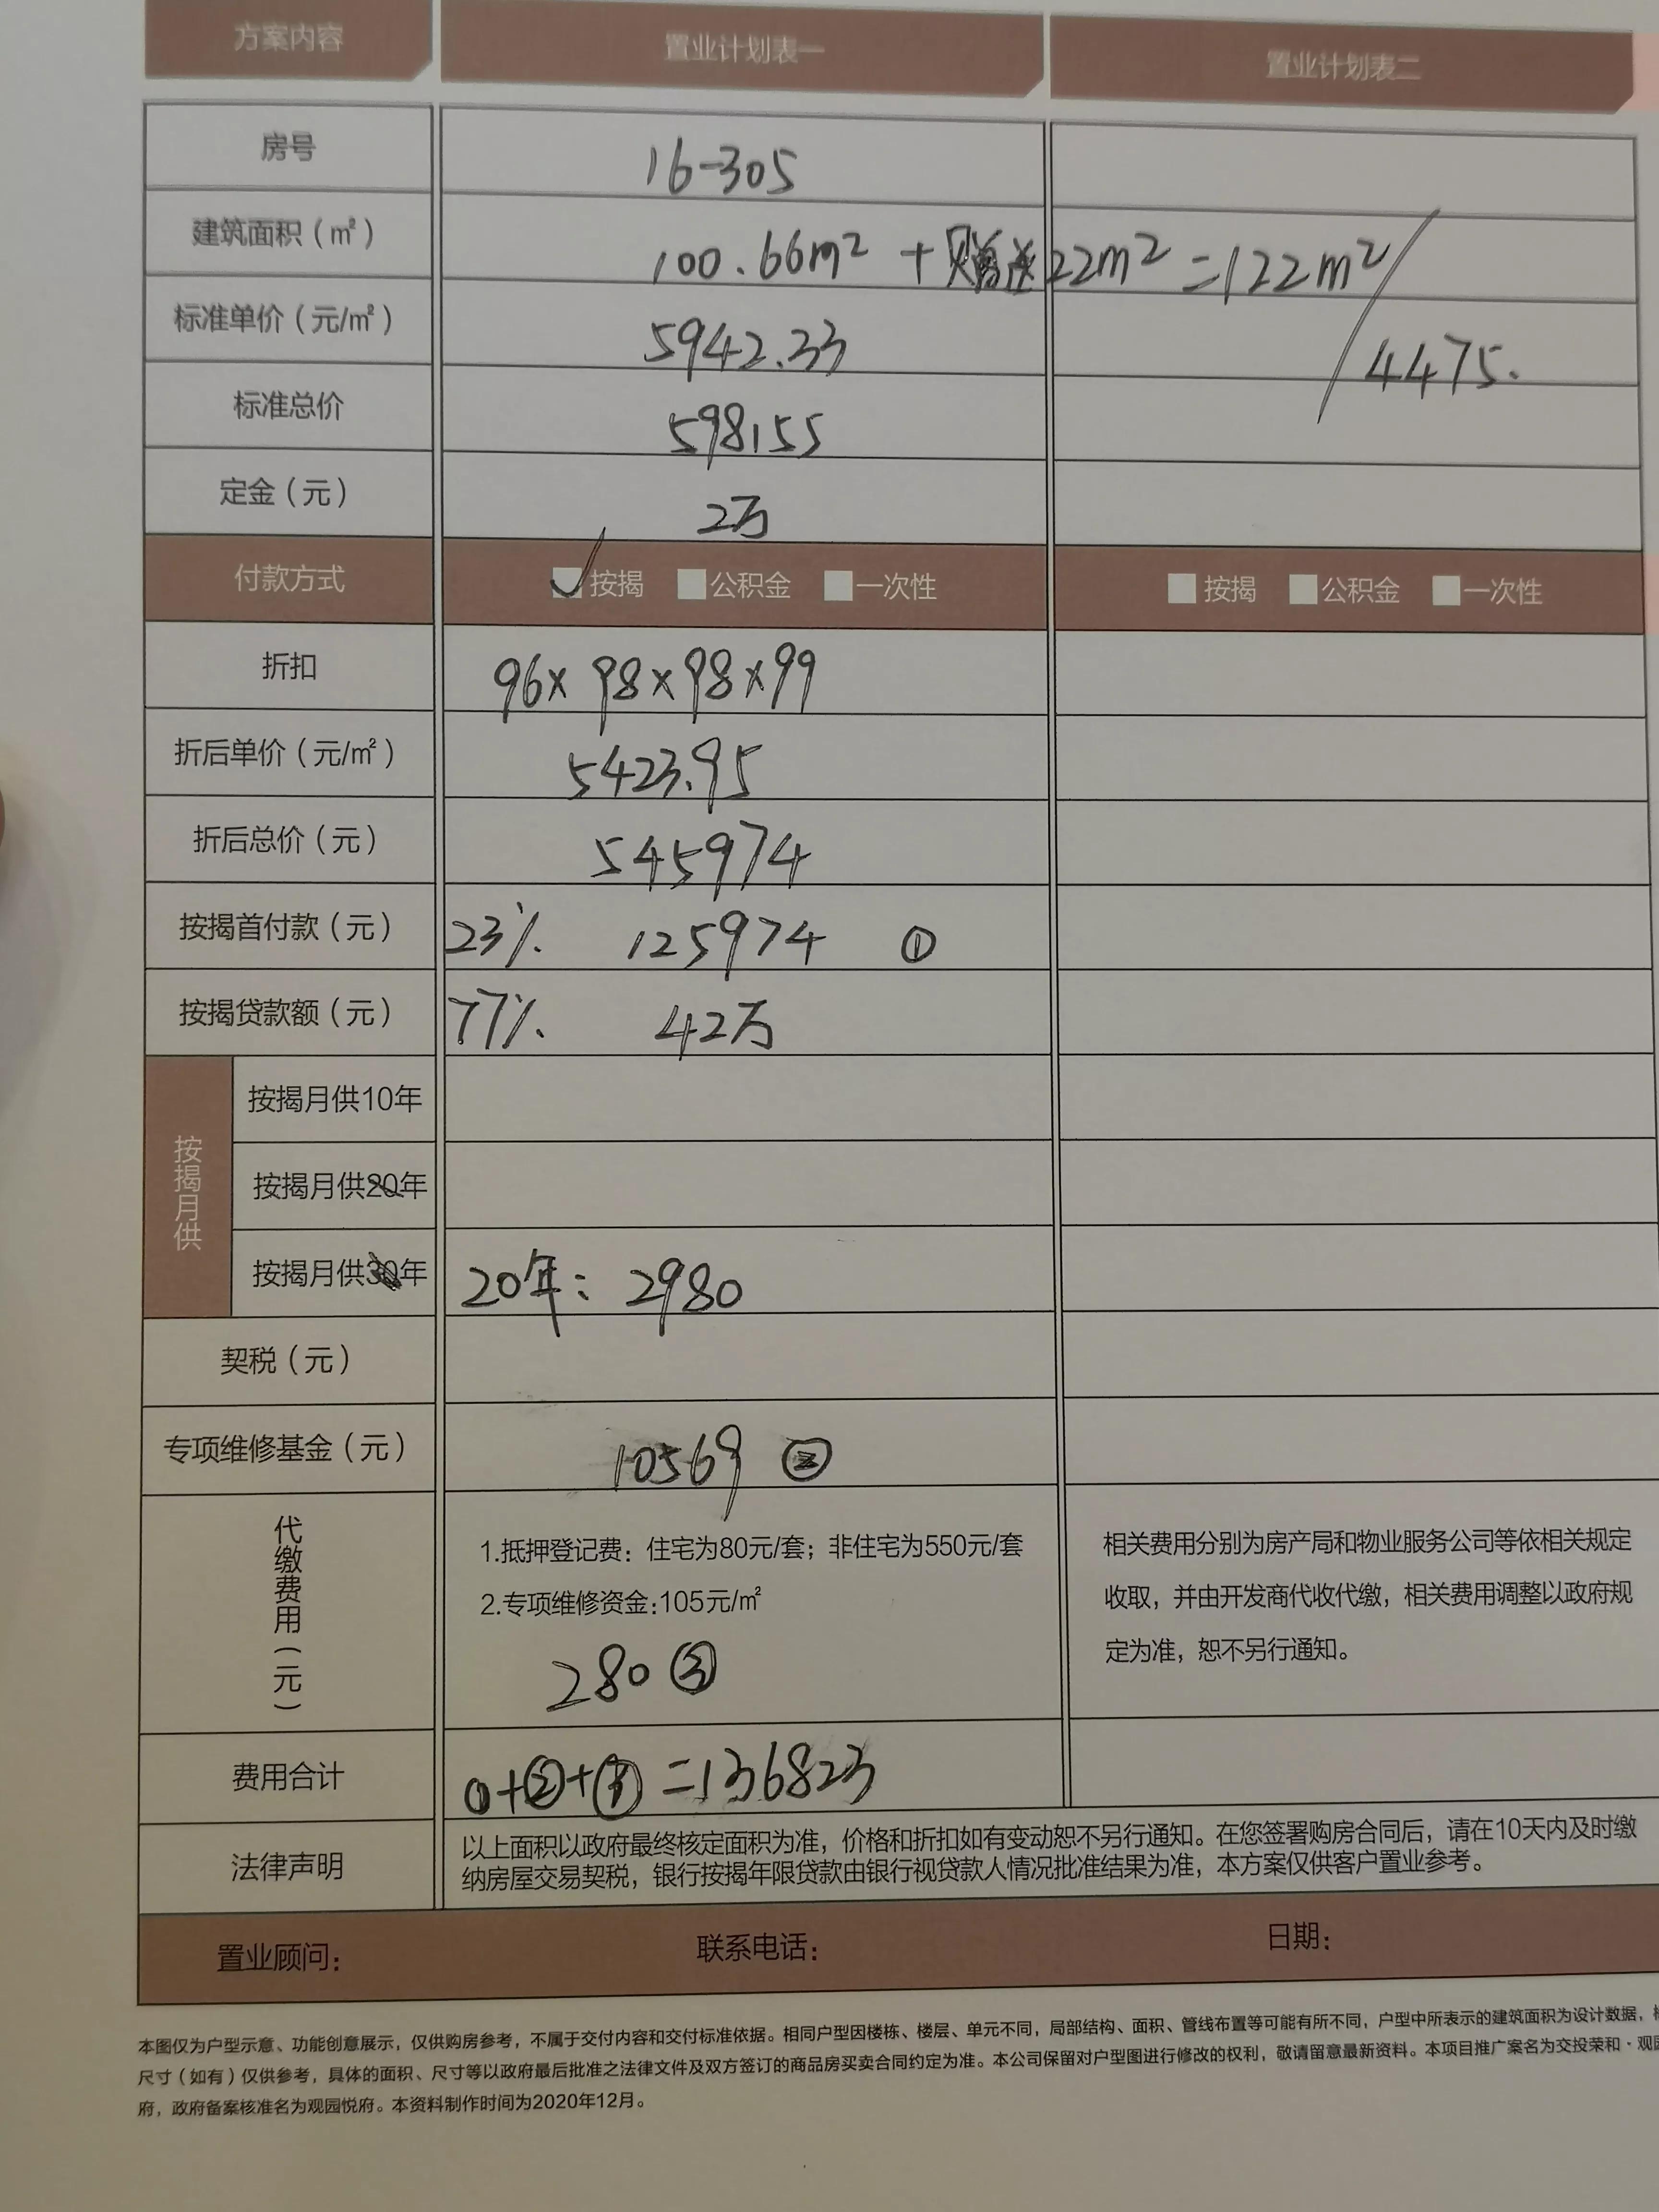 方案内容 置业计划表一 置业计划表二
房号 16-305
建筑面积（㎡） 100.66m² + 赠送22m² =122m²/
标准单价（元/㎡） 5942.33 4475.
标准总价 598155
定金（元） 2万
付款方式 ✓按揭 □公积金 □一次性 □按揭 □公积金 □一次性
折扣 96×98×98×99
折后单价（元/㎡） 5423.95
折后总价（元） 545974
按揭首付款（元） 23%. 125974 ①
按揭贷款额（元） 77%. 42万
按揭月供
按揭月供10年
按揭月供20年
按揭月供30年 20年: 2980
契税（元）
专项维修基金（元） 10569 ②
代缴费用（元）
1.抵押登记费：住宅为80元/套；非住宅为550元/套
2.专项维修资金:105元/㎡
280 ③
相关费用分别为房产局和物业服务公司等依相关规定
收取，并由开发商代收代缴，相关费用调整以政府规
定为准，恕不另行通知。
费用合计 ①+②+③ =136823
法律声明
以上面积以政府最终核定面积为准，价格和折扣如有变动恕不另行通知。在您签署购房合同后，请在10天内及时缴
纳房屋交易契税，银行按揭年限贷款由银行视贷款人情况批准结果为准，本方案仅供客户置业参考。
置业顾问： 联系电话： 日期：
本图仅为户型示意、功能创意展示，仅供购房参考，不属于交付内容和交付标准依据。相同户型因楼栋、楼层、单元不同，局部结构、面积、管线布置等可能有所不同，户型中所表示的建筑面积为设计数据，
尺寸（如有）仅供参考，具体的面积、尺寸等以政府最后批准之法律文件及双方签订的商品房买卖合同约定为准。本公司保留对户型图进行修改的权利，敬请留意最新资料。本项目推广案名为交投荣和·观园
府，政府备案核准名为观园悦府。本资料制作时间为2020年12月。